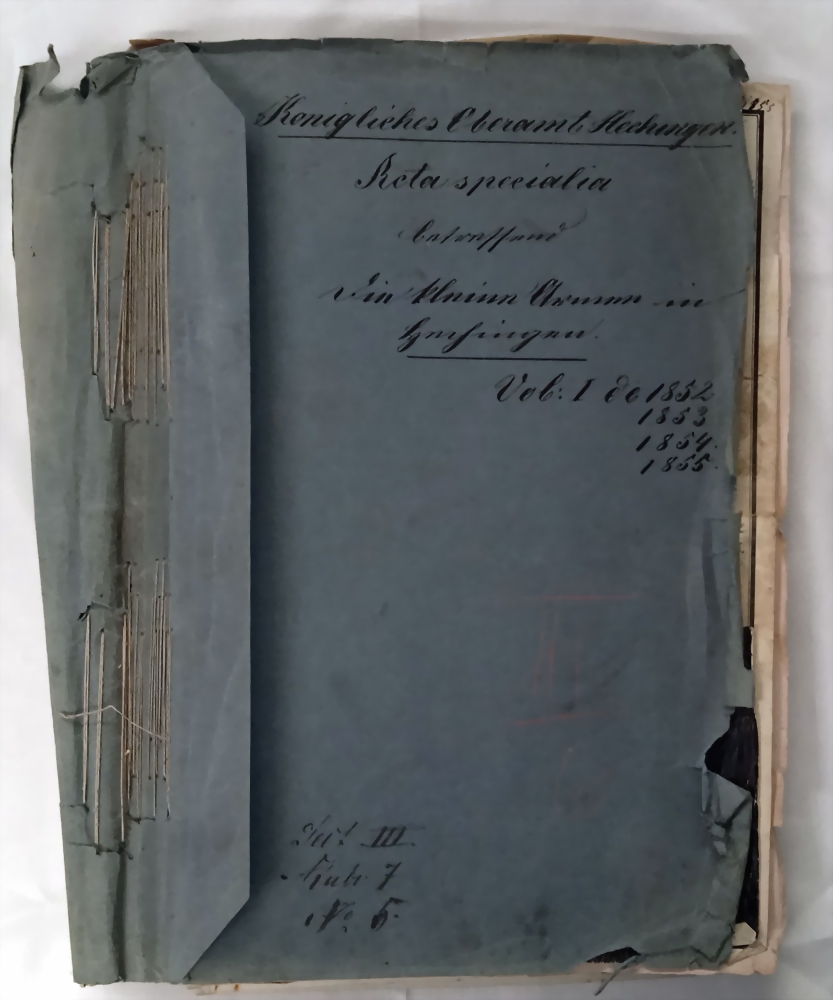 Königliches Oberamt Hechingen.
Acta specialia
betreffend
Die kleine Armen in
Hechingen.
Vol: I de 1852
1853
1854.
1855.
Sect III.
Rubr 7
No. 5.